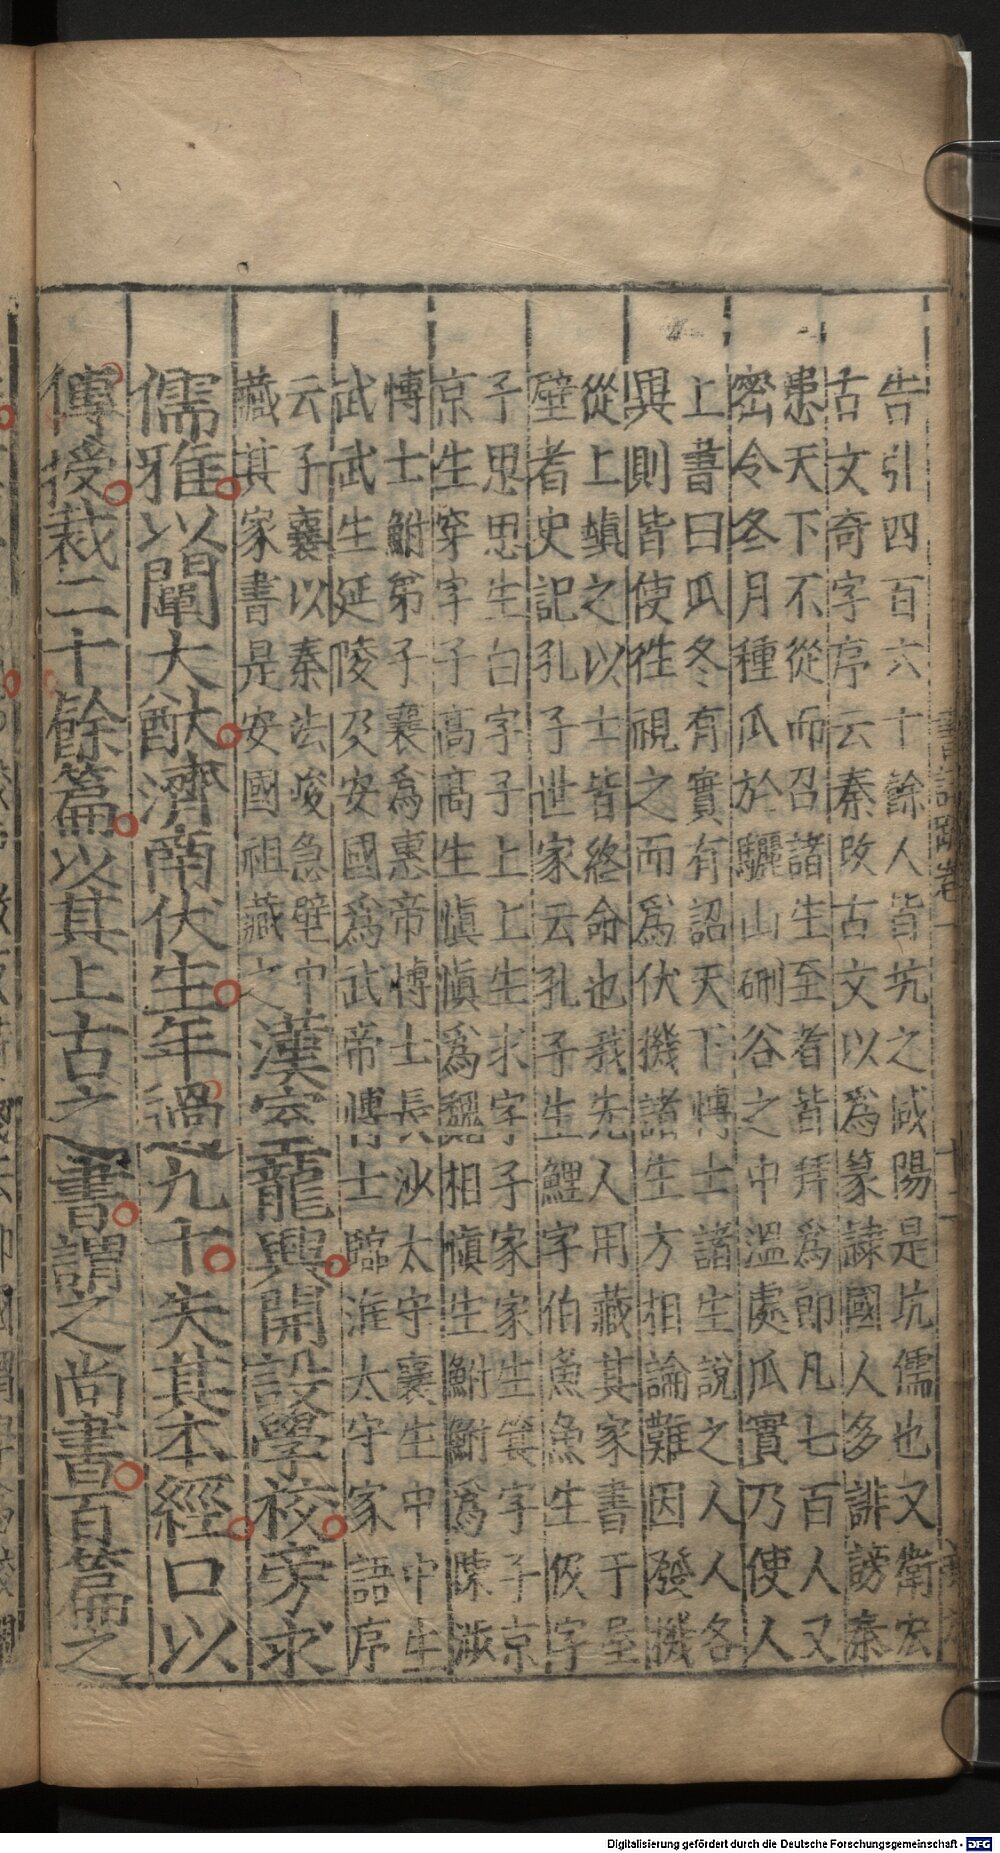 告引四百六十餘人皆坑之咸陽是坑儒也又衛宏
古文奇字序云秦改古文以為篆隸國人多誹謗秦
患天下不從而召諸生至者皆拜為郎凡七百人又
密令冬月種瓜於驪山硎谷之中溫處瓜實乃使人
上書曰瓜冬有實有詔天下博士諸生說之人人各
異則皆使徃視之而為伏機諸生方相論難因發機
從上填之以土皆終命也我先人用藏其家書于屋
壁者史記孔子世家云孔子生鯉字伯魚魚生伋字
子思思生白字子上上生求字子家家生箕字子京
京生穿字子高高生慎慎為魏相慎生鮒鮒為陳涉
博士鮒弟子襄為惠帝博士長沙太守襄生中中生
武武生延陵及安國為武帝博士臨淮太守家語序
云子襄以秦法峻急壁中
藏其家書是安國祖藏之
漢室龍興開設學校旁求
儒雅以闡大猷濟南伏生年過九十失其本經口以
傳授裁二十餘篇以其上古之書謂之尚書百篇之
書註疏卷一
十二
Digitalisierung gefördert durch die Deutsche Forschungsgemeinschaft - DFG